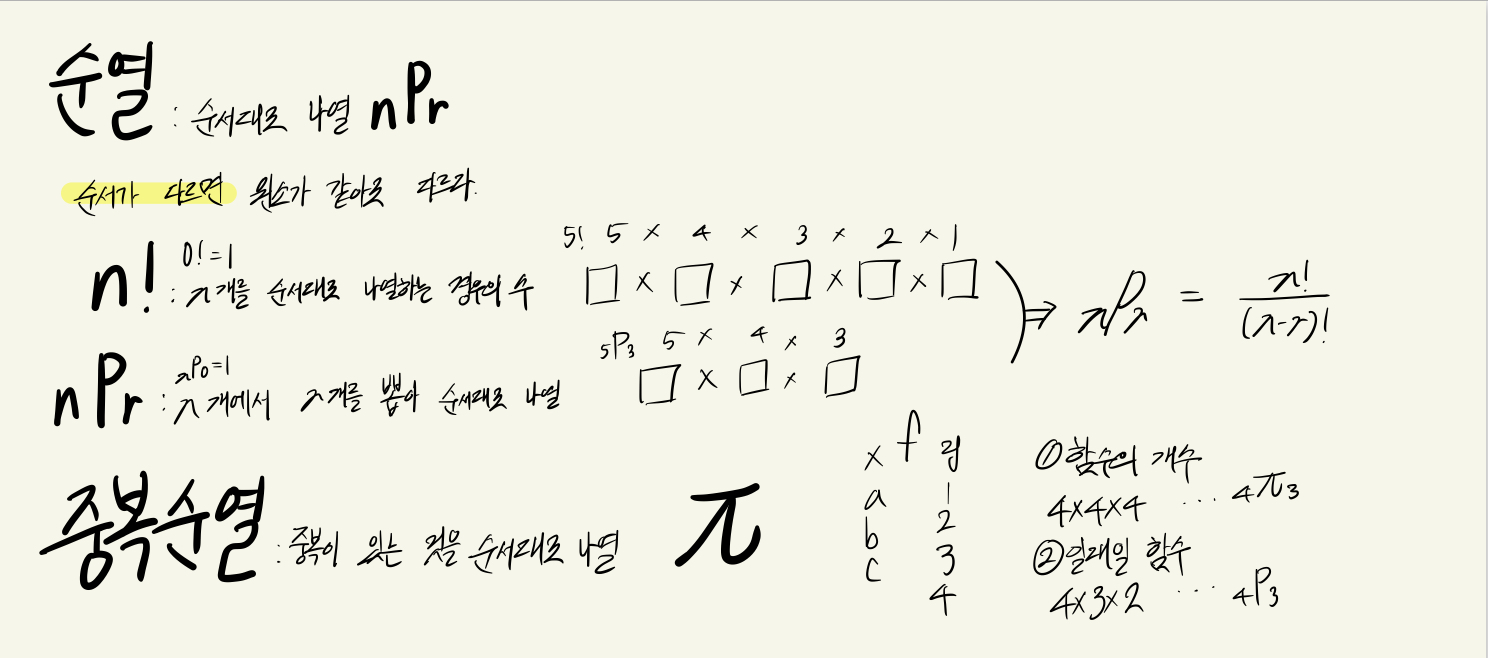 순열 : 순서대로 나열 nPr
순서가 다르면 원소가 같아도 다르다.
n! 0!=1
: n개를 순서대로 나열하는 경우의 수
5! 5 × 4 × 3 × 2 × 1
□ × □ × □ × □ × □
nPr nP0=1
: n개에서 r개를 뽑아 순서대로 나열
5P3 5 × 4 × 3
□ × □ × □
⇒ nPr = n!/(n-r)!
중복순열 : 중복이 있는 것을 순서대로 나열 π
x f
a 1
b 2
c 3
4
①함수의 개수
4×4×4 ... 4π3
②일대일 함수
4×3×2 ... 4P3